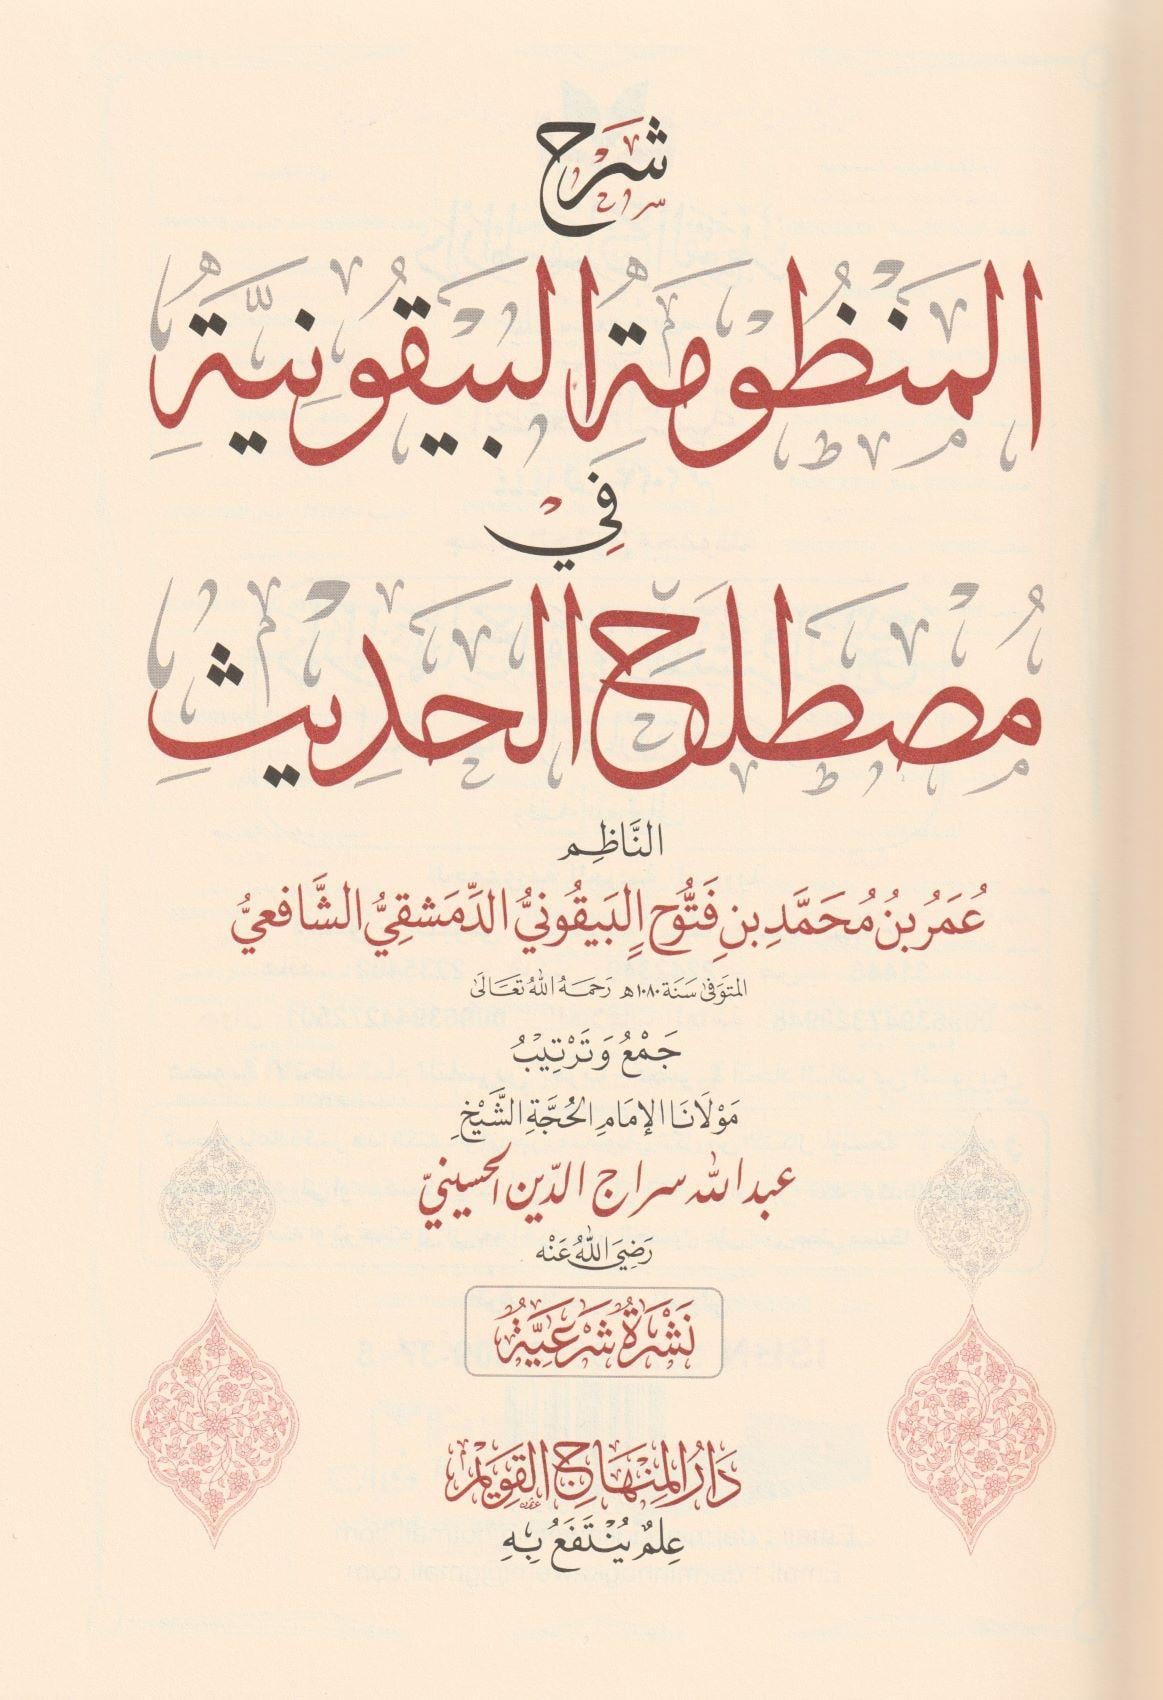 شَرْح
المَنْظُومَةُ البَيْقُونِيَّةُ
فِي
مُصْطَلَحِ الحَدِيثِ
النَّاظِم
عُمَرُ بنُ مُحَمَّدِ بنِ فَتُّوحٍ البَيقُونيُّ الدِّمَشقِيُّ الشَّافعيُّ
المتوَفىٰ سَنَة ١٠٨٠هـ رَحمَهُ اللهُ تعَالَىٰ
جَمْعُ وَتَرْتِيبُ
مَوْلَانَا الإمَامِ الحُجَّةِ الشَّيْخِ
عبد الله سراج الدّين الحسينيّ
رَضِيَ اللهُ عَنْه
نَشْرَةٌ شَرْعِيَّةٌ
دَارُ المِنْهَاجِ القَوِيْمِ
عِلمٌ يُنْتَفَعُ بِهِ